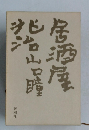 居酒屋
兆治
山口瞳